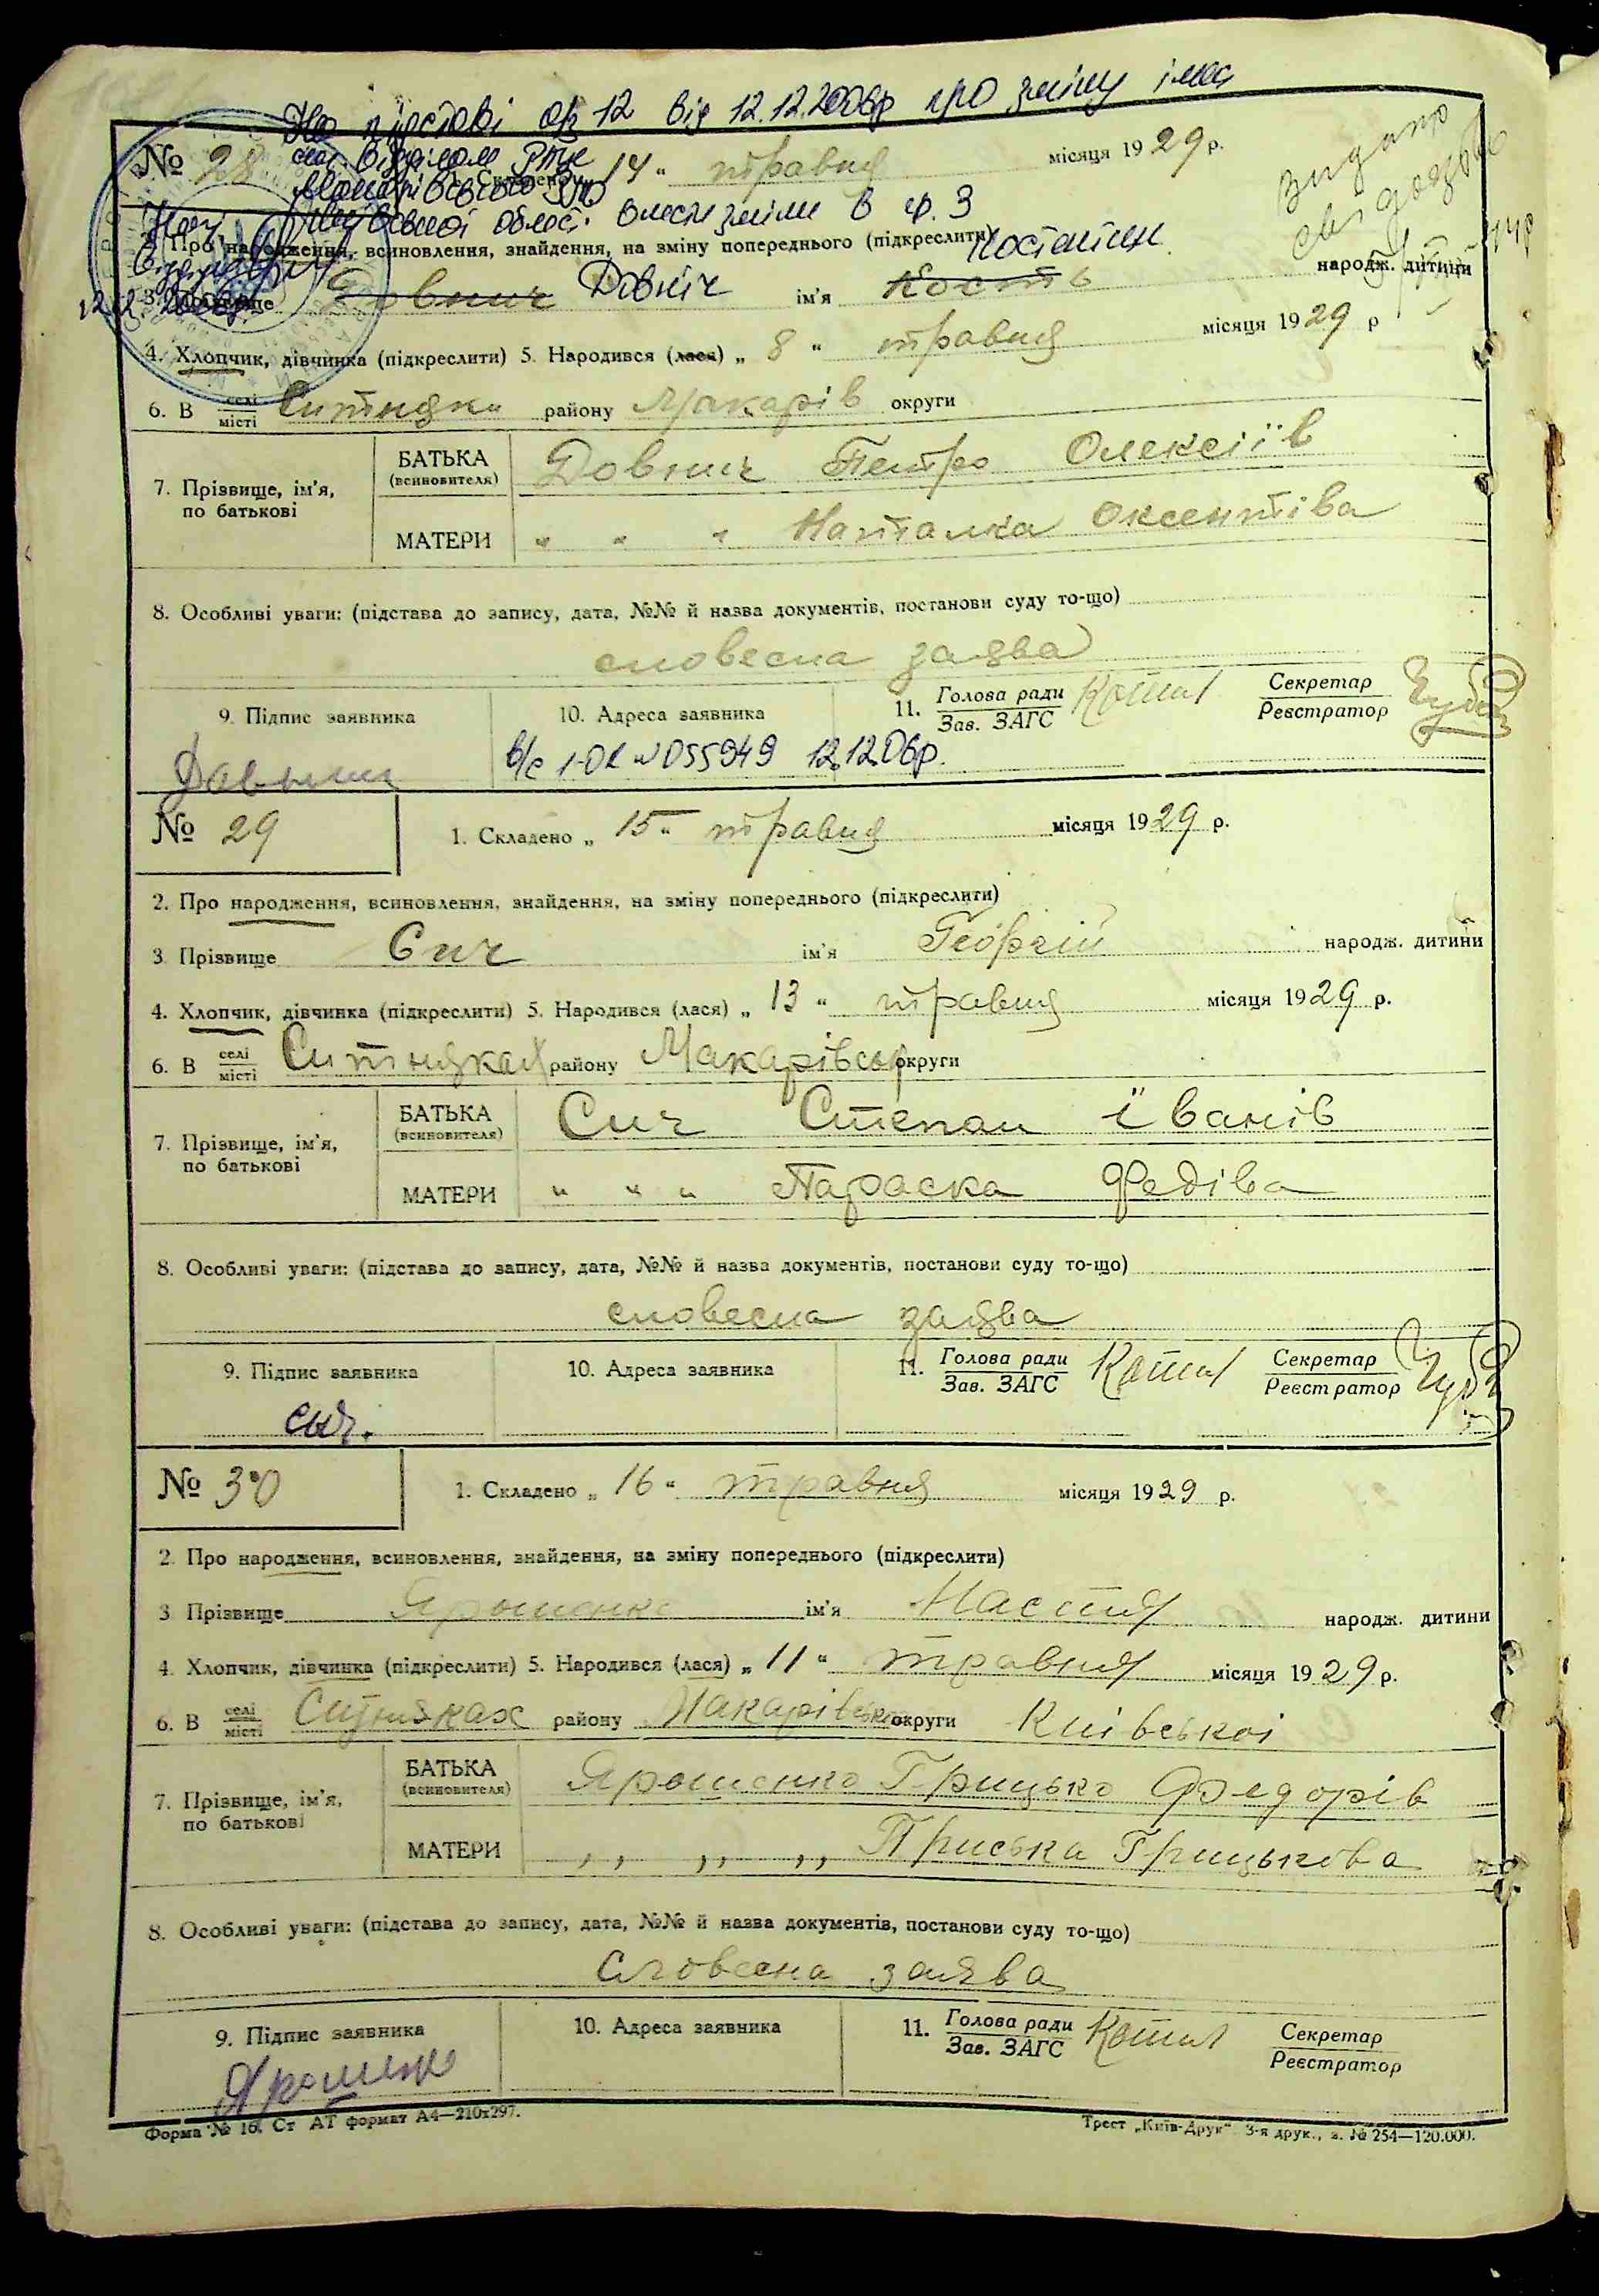 На підставі ар 12 від 12.12.2006р про зміну імен
відділом РАЦС
Макарівського РУЮ
Київської області внесені зміни в гр. 3
12.12.2006р.
Видано
№ 28 1. Складено „ 14 “ травня місяця 1929 р.
2. Про народження, всиновлення, знайдення, на зміну попереднього (підкреслити)
Костянтин
3. Прізвище Довнич Довнич ім'я Кость народж. дитини
4. Хлопчик, дівчинка (підкреслити) 5. Народився (лася) „ 8 “ травня місяця 1929 р
6. В селі місті Ситняки району Макарів округи
7. Прізвище, ім'я, по батькові
БАТЬКА (всиновителя) Довнич Петро Олексіїв
МАТЕРИ „ „ „ Наталка Оксентіва
8. Особливі уваги: (підстава до запису, дата, №№ й назва документів, постанови суду то-що)
словесна заява
9. Підпис заявника 10. Адреса заявника 11. Голова ради Зав. ЗАГС Секретар Реєстратор
Довнич в/с 1-ОК №055949 12.12.06р.
№ 29 1. Складено „ 15 “ травня місяця 1929 р.
2. Про народження, всиновлення, знайдення, на зміну попереднього (підкреслити)
3 Прізвище Сич ім'я Георгій народж. дитини
4. Хлопчик, дівчинка (підкреслити) 5. Народився (лася) „ 13 “ травня місяця 1929 р.
6. В селі місті Ситняках району Макарівськ округи
7. Прізвище, ім'я, по батькові
БАТЬКА (всиновителя) Сич Степан Іванів
МАТЕРИ „ „ „ Параска Федіва
8. Особливі уваги: (підстава до запису, дата, №№ й назва документів, постанови суду то-що)
словесна заява
9. Підпис заявника 10. Адреса заявника 11. Голова ради Зав. ЗАГС Секретар Реєстратор
Сич.
№ 30 1. Складено „ 16 “ травня місяця 1929 р.
2. Про народження, всиновлення, знайдення, на зміну попереднього (підкреслити)
3 Прізвище Ярошенко ім'я Настя народж. дитини
4. Хлопчик, дівчинка (підкреслити) 5. Народився (лася) „ 11 “ травня місяця 1929 р.
6. В селі місті Ситняках району Макарівськ округи Київської
7. Прізвище, ім'я, по батькові
БАТЬКА (всиновителя) Ярошенко Грицько Федорів
МАТЕРИ „ „ „ Приська Грицькова
8. Особливі уваги: (підстава до запису, дата, №№ й назва документів, постанови суду то-що)
Словесна заява
9. Підпис заявника 10. Адреса заявника 11. Голова ради Зав. ЗАГС Секретар Реєстратор
Форма № 16. Ст АТ формат А4—210х297. Трест „Київ-Друк“ 3-я друк., з. № 254—120.000.